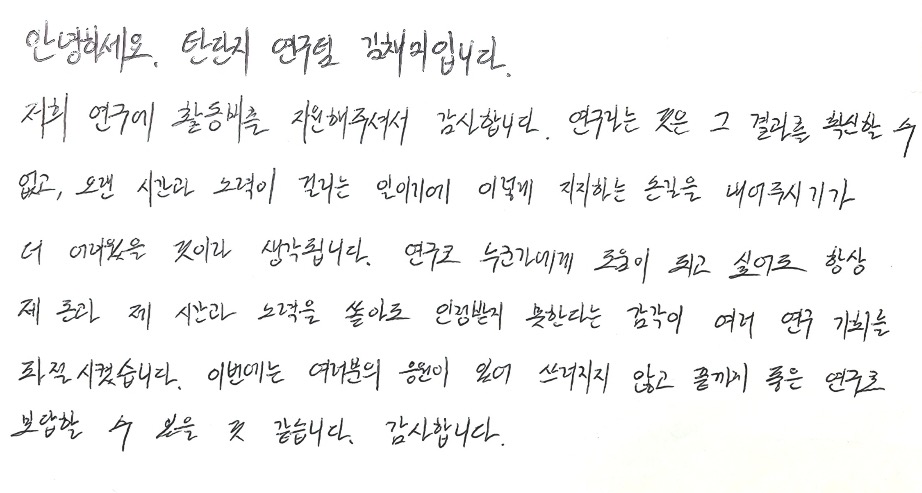 안녕하세요. 탄단지 연구팀 김채미입니다.
저희 연구에 활동비를 지원해주셔서 감사합니다. 연구라는 것은 그 결과를 확신할 수
없고, 오랜 시간과 노력이 걸리는 일이기에 이렇게 지지하는 손길을 내어주시기가
더 어려웠을 것이라 생각됩니다. 연구로 누군가에게 도움이 되고 싶어도 항상
제 돈과 제 시간과 노력을 쏟아도 인정받지 못한다는 감각이 여러 연구 기회를
좌절시켰습니다. 이번에는 여러분의 응원이 있어 쓰러지지 않고 끝까지 좋은 연구로
보답할 수 있을 것 같습니다. 감사합니다.